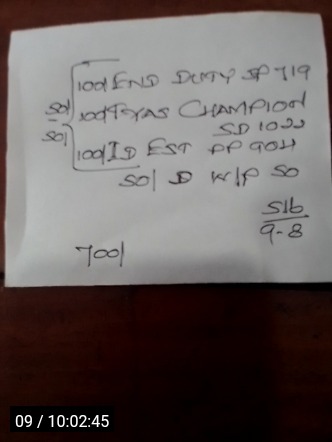 100/ END DUTY SP 719
50/ 100/ TEXAS CHAMPION
50/ SD 1022
100/ ID EST PP 9011
50/ D W/P 50
516
9-8
700/
09 / 10:02:45